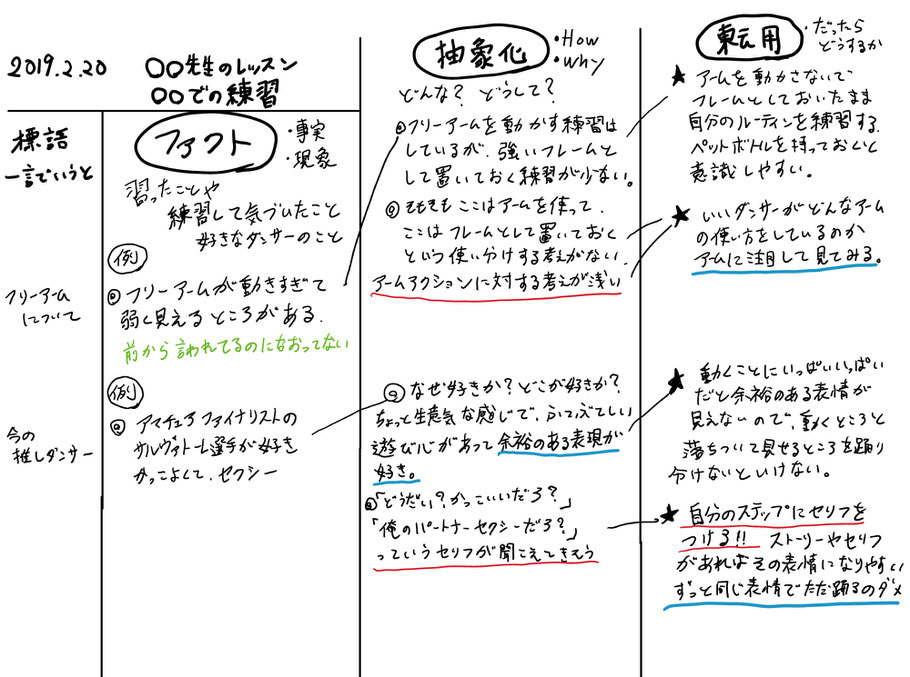 2019.2.20
〇〇先生のレッスン
〇〇での練習
標語
一言でいうと
ファクト
・事実
・現象
習ったことや
練習して気づいたこと
好きなダンサーのこと
フリーアーム
について
例
フリーアームが動きすぎて
弱く見えるところがある.
前から言われてるのになおってない
今の
推しダンサー
例
アマチュアファイナリストの
サルヴァトーレ選手が好き
かっこよくて、セクシー
抽象化
・How
・Why
どんな? どうして?
フリーアームを動かす練習は
しているが、強いフレームと
して置いておく練習が少ない。
そもそもここはアームを使って、
ここはフレームとして置いておく
という使い分けする考えがない.
アームアクションに対する考えが浅い
なぜ好きか?どこが好きか?
ちょっと生意気な感じで、ふてぶてしい
遊び心があって余裕のある表現が
好き。
「どうだい?かっこいいだろ?」
「俺のパートナーセクシーだろ?」
っていうセリフが聞こえてきそう
転用
・だったら
どうするか
★アームを動かさないで
フレームとしておいたまま
自分のルーティンを練習する.
ペットボトルを持っておくと
意識しやすい。
★いいダンサーがどんなアーム
の使い方をしているのか
アムに注目して見てみる。
★動くことにいっぱいいっぱい
だと余裕のある表情が
見えないので、動くところと
落ちついて見せるところを踊り
分けないといけない。
★自分のステップにセリフを
つける!! ストーリーやセリフ
があればその表情になりやすい
ずっと同じ表情でただ踊るのダメ